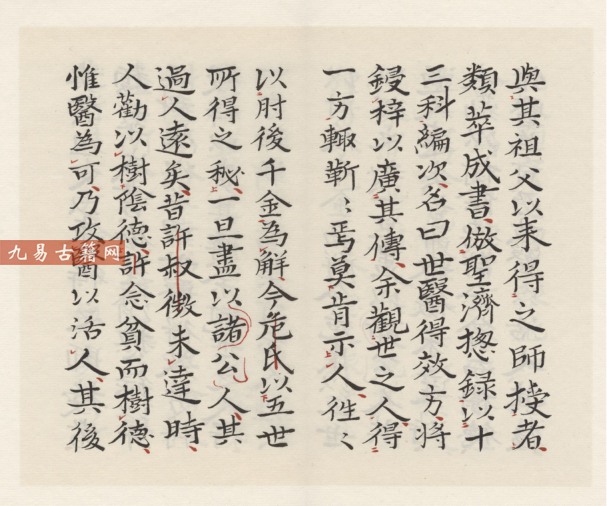 與其祖父以来得之師授者
類萃成書倣聖濟揔錄以十
三科編次名曰世醫得效方将
鋟梓以廣其傳余觀世之人得
一方輙靳〻焉莫肯示人徃〻
以肘後千金為解今危氏以五世
所得之秘一旦盡以諸公人其
過人遠矣昔許叔微未達時
人勸以樹陰德許念貧而樹德
惟醫為可乃攻醫以活人其後
九易古籍网